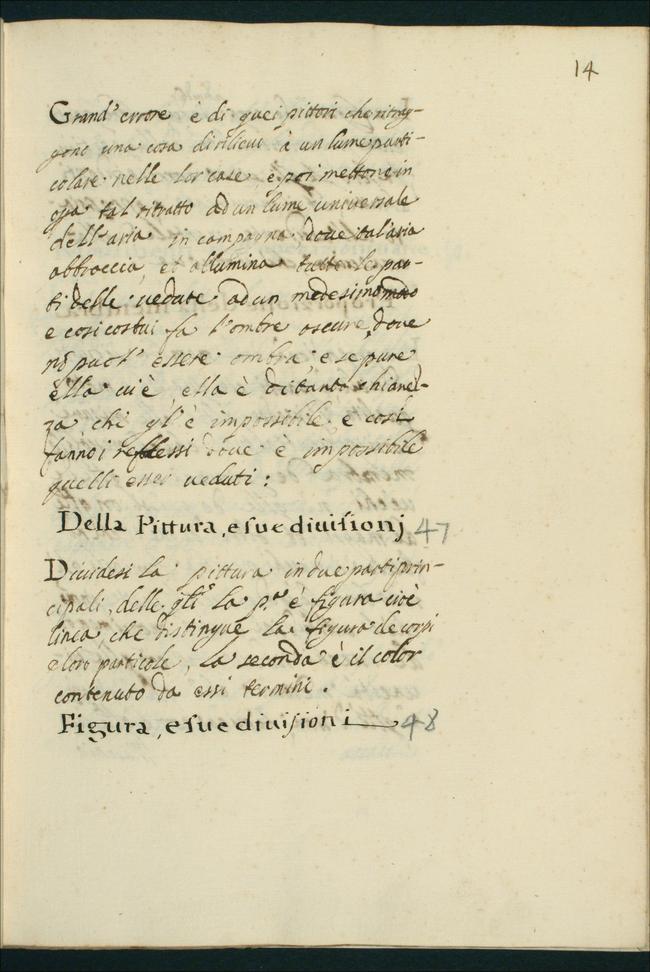 14
Grand' errore è di quei pittori che ritrag-
gono una cosa di rilieuo à un lume parti-
colare nelle lor case, e poi mettono in
opa tal ritratto ad un lume uniuersale
dell'aria in campagna doue tal aria
abbraccia, et allumina tutte le par-
ti delle uedute ad un medesimo modo
e cosi costui fa l'ombre oscure, doue
nõ puol' essere ombra e se pure
ella ui è, ella è di tanta chiarez-
za, che gl'è impossibile e cosi
fanno i reflessi doue è impossibile
quelli esser ueduti:
Della Pittura, e sue diuisionj 47
Diuidesi la pittura in due parti prin-
cipali, delle qli la pa è figura cioè
linea che distingue la figura de corpi
e loro particole, la seconda è il color
contenuto da essi termini.
Figura, e sue diuisioni 48